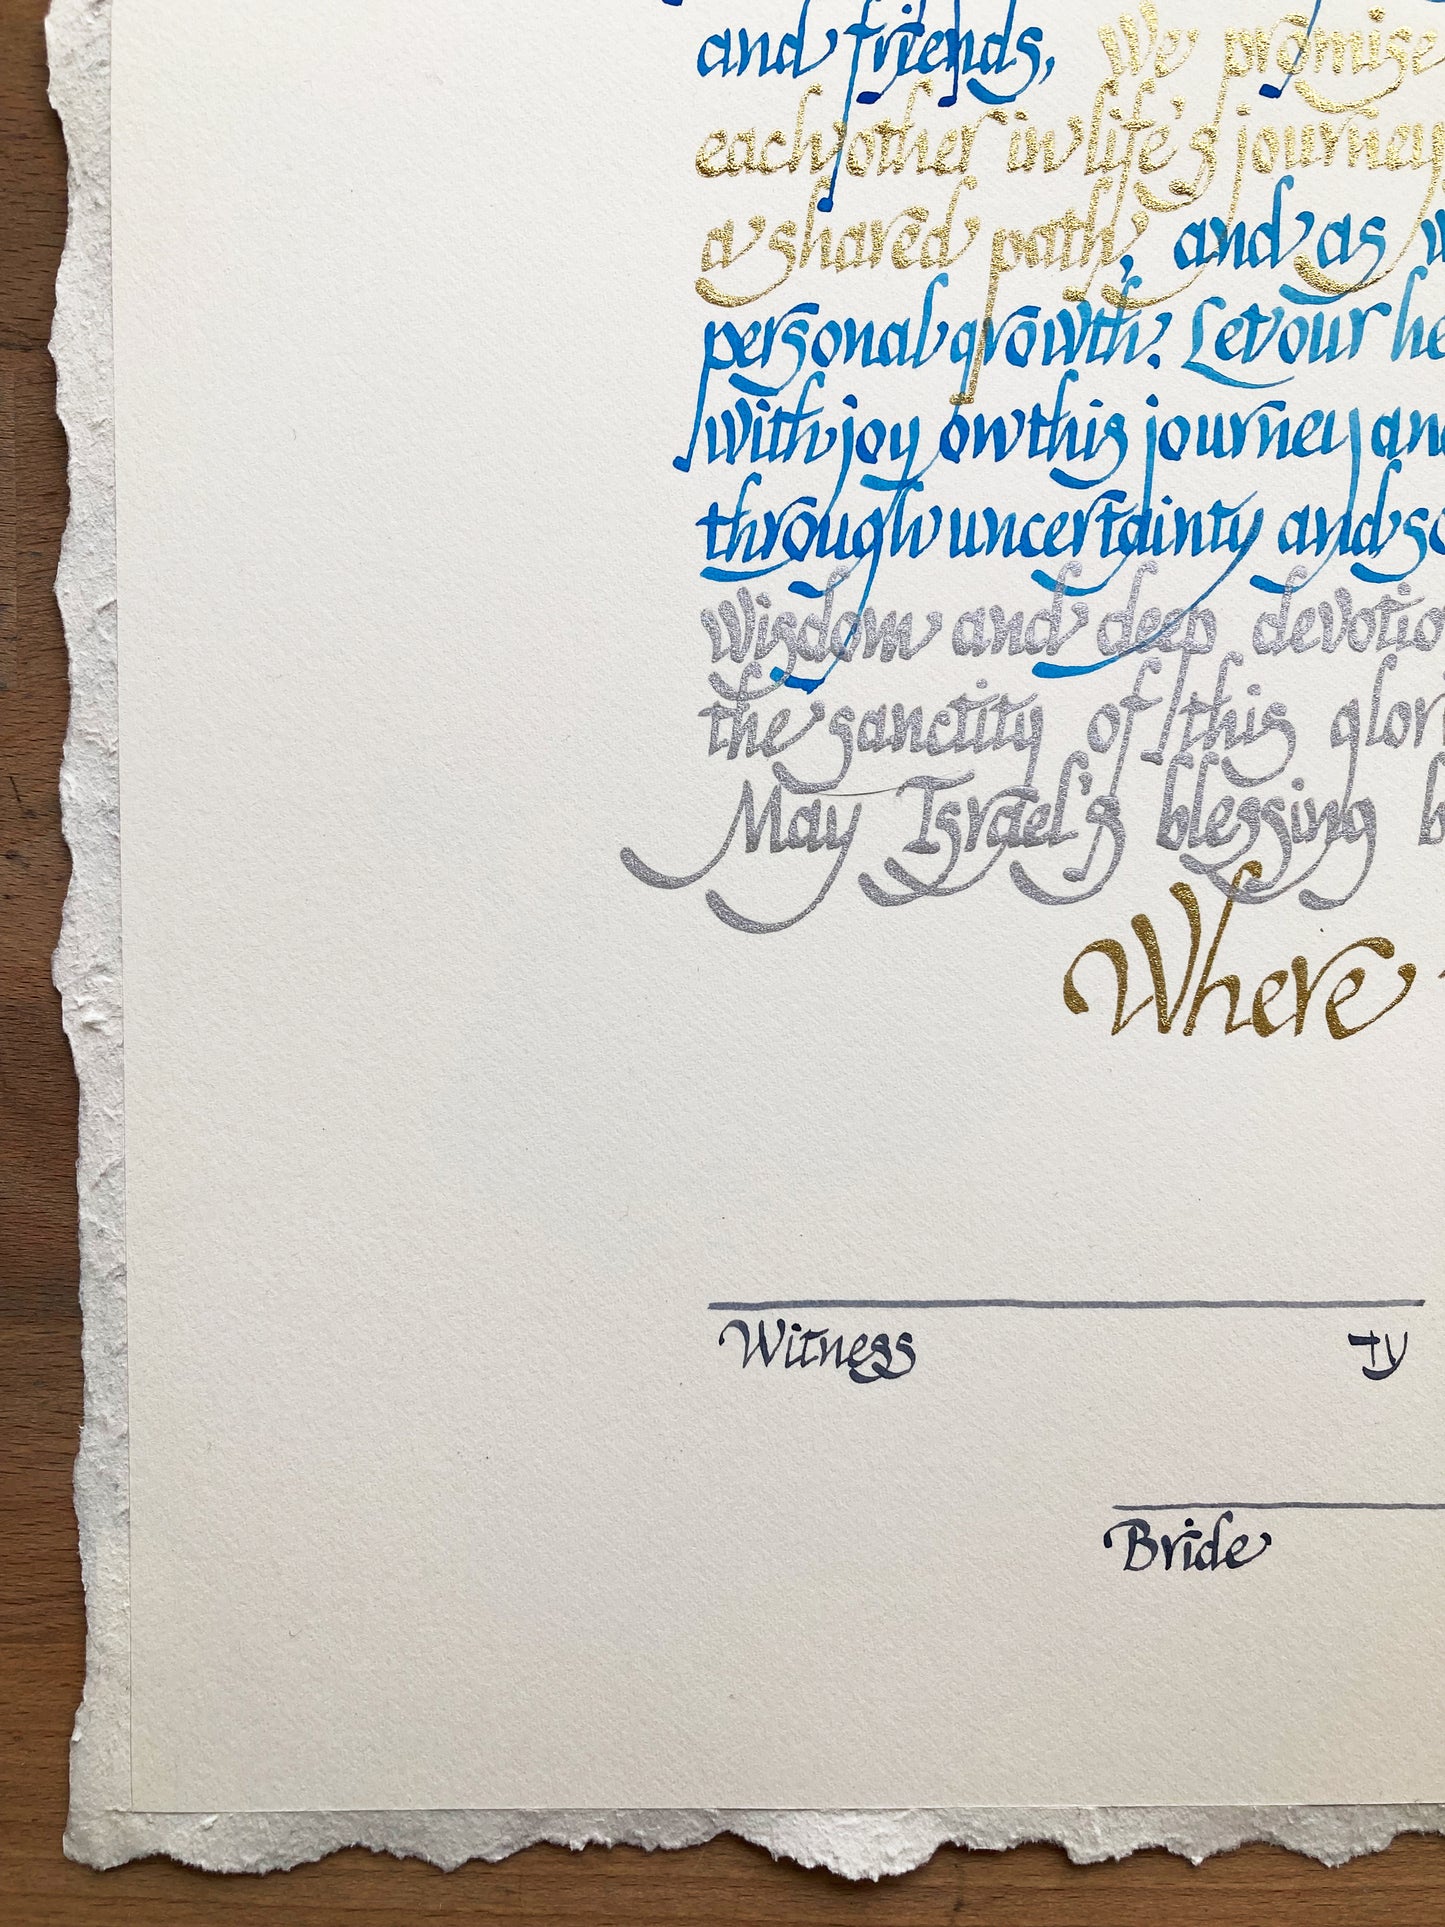 and friends, We promise
each other in life's journey
a shared path, and as w
personal growth. Let our he
with joy on this journey and
through uncertainty and so
Wisdom and deep devotio
the sanctity of this glori
May Israel's blessing b
Where
Witness ty
Bride